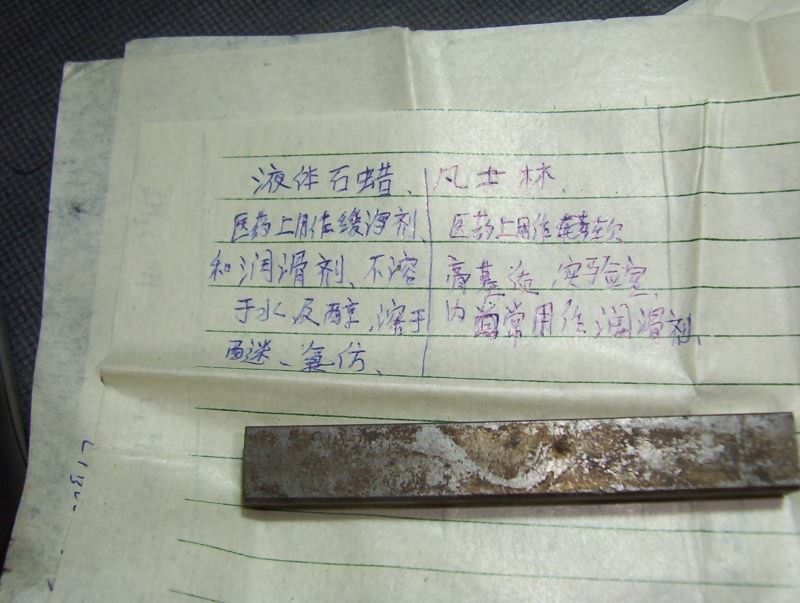 液体石蜡、
医药上用作缓泻剂、
和润滑剂、不溶
于水及醇、溶于
醚、氯仿、
凡士林、
医药上用作软
膏基、实验室
内常用作润滑剂、